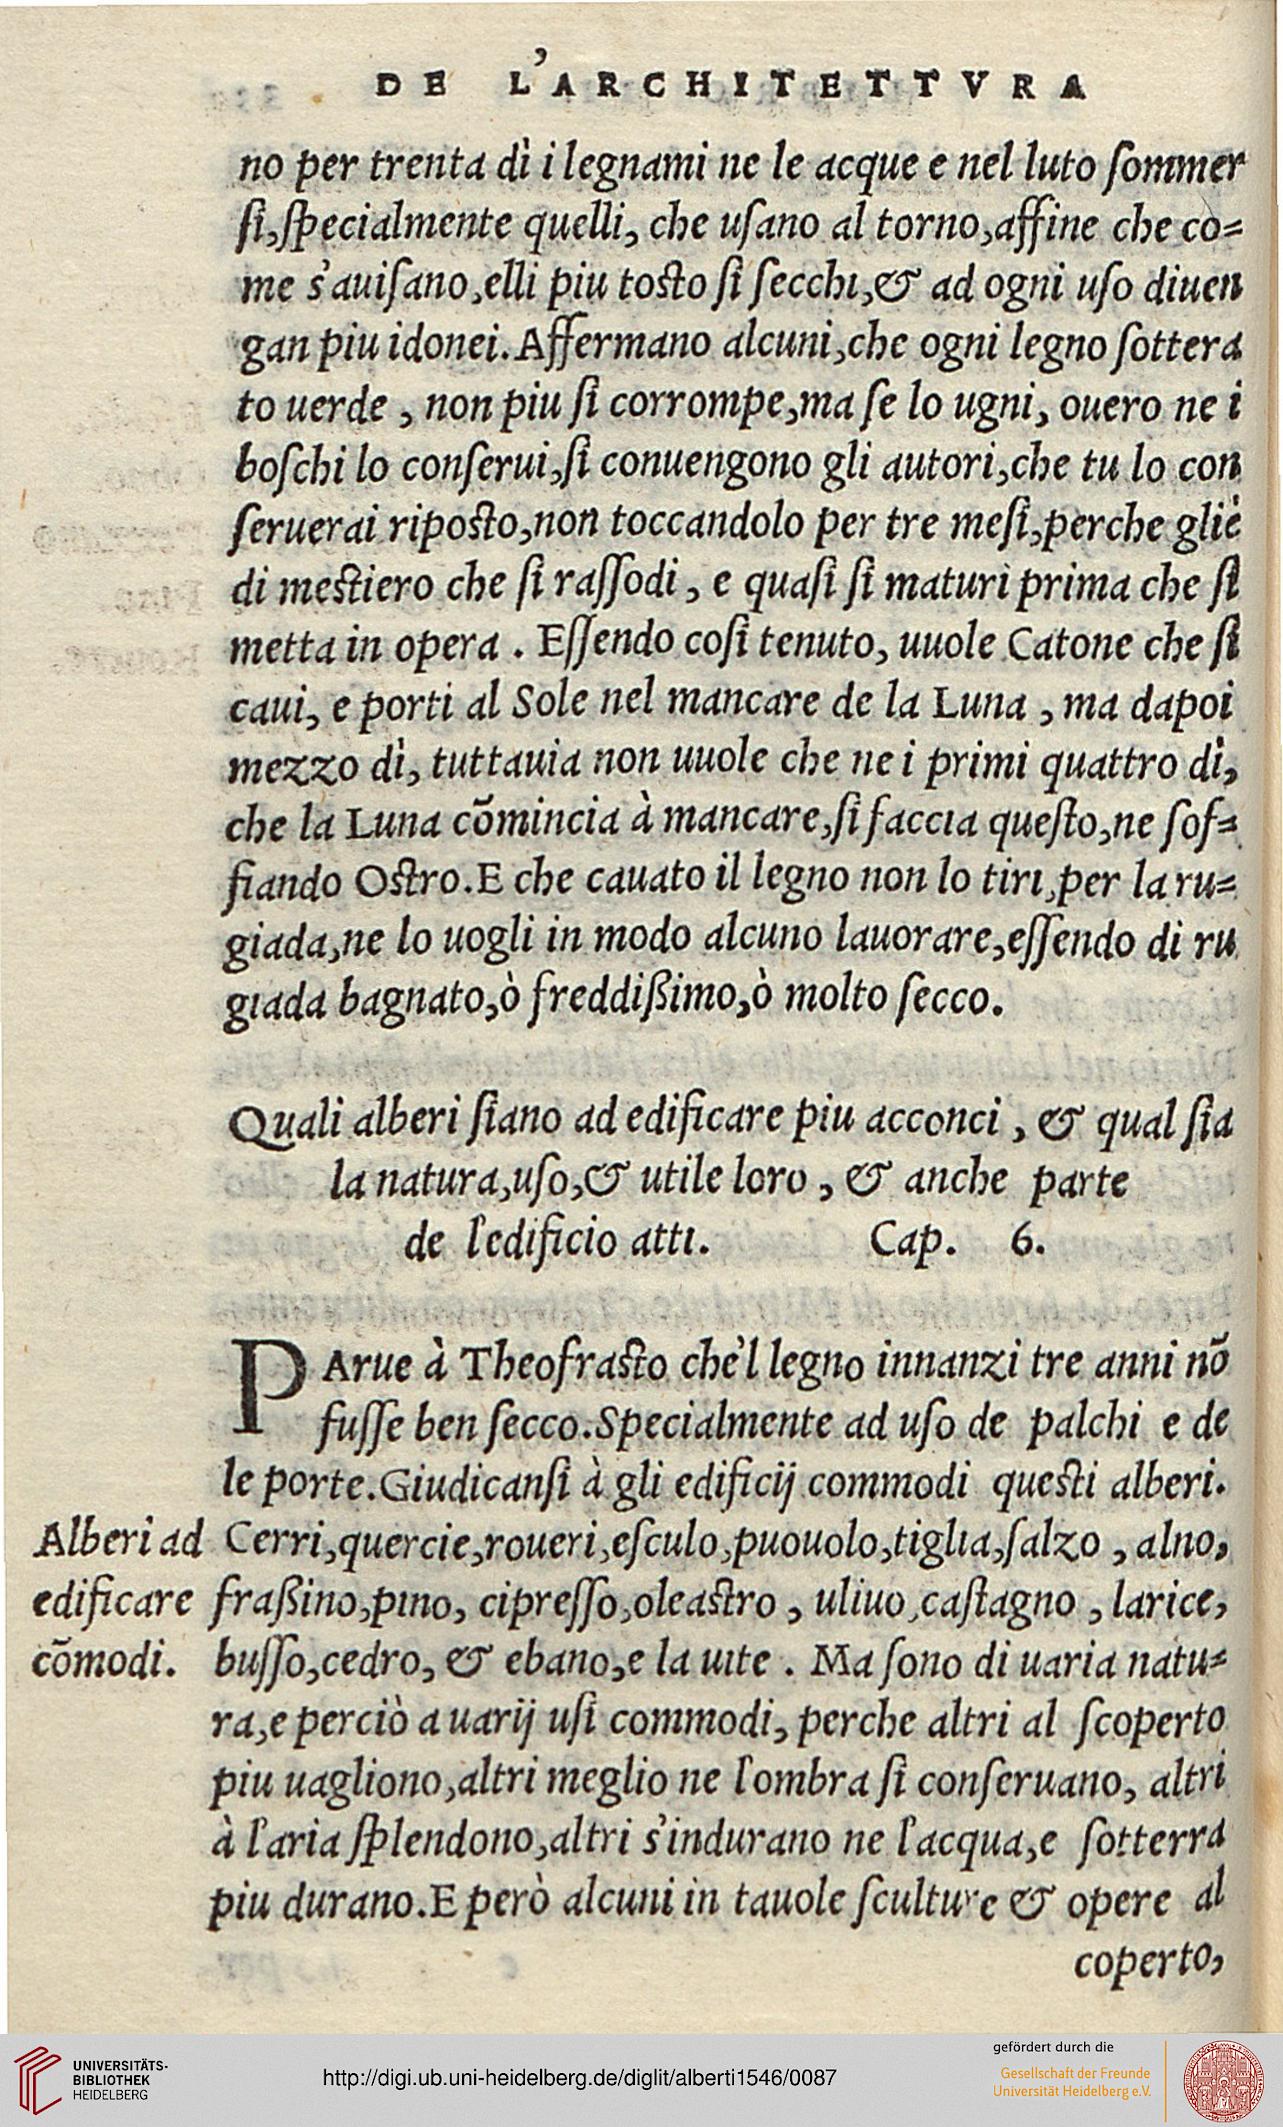 DE L'ARCHITETTVRA
no per trenta dì i legnami ne le acque e nel luto ſommer
ſi,ſpecialmente quelli, che uſano al torno,affine che co=
me s'auiſano,elli piu toſto ſi ſecchi,& ad ogni uſo diuen
gan piu idonei.Affermano alcuni,che ogni legno ſottera
to uerde , non piu ſi corrompe,ma ſe lo ugni, ouero ne i
boſchi lo conſerui,ſi conuengono gli autori,che tu lo con
ſeruerai ripoſto,non toccandolo per tre meſi,perche gliè
di meſtiero che ſi raſſodi , e quaſi ſi maturi prima che ſi
metta in opera . Eſſendo coſi tenuto, uuole Catone che ſi
caui, e porti al Sole nel mancare de la Luna , ma dapoi
mezzo dì, tuttauia non uuole che ne i primi quattro dì,
che la Luna cõmincia à mancare,ſi faccia queſto,ne ſof=
fiando Oſtro.E che cauato il legno non lo tiri,per la ru=
giada,ne lo uogli in modo alcuno lauorare,eſſendo di ru
giada bagnato,ò freddißimo,ò molto ſecco.
Quali alberi ſiano ad edificare piu acconci , & qual ſia
la natura,uſo,& utile loro , & anche parte
de l'edificio atti. Cap. 6.
PArue à Theofraſto che'l legno innanzi tre anni nõ
fuſſe ben ſecco.Specialmente ad uſo de palchi e de
le porte.Giudicanſi à gli edificij commodi queſti alberi.
Alberi ad edificare cõmodi.
Cerri,quercie,roueri,eſculo,puouolo,tiglia,ſalzo , alno,
fraßino,pino, cipreſſo,oleaſtro , uliuo,caſtagno , larice,
buſſo,cedro, & ebano,e la uite . Ma ſono di uaria natu=
ra,e perciò a uarij uſi commodi, perche altri al ſcoperto
piu uagliono,altri meglio ne l'ombra ſi conſeruano, altri
à l'aria ſplendono,altri s'indurano ne l'acqua,e ſotterra
piu durano.E però alcuni in tauole ſculture & opere al
coperto,
UNIVERSITÄTS-
BIBLIOTHEK
HEIDELBERG
http://digi.ub.uni-heidelberg.de/diglit/alberti1546/0087
gefördert durch die
Gesellschaft der Freunde
Universität Heidelberg e.V.